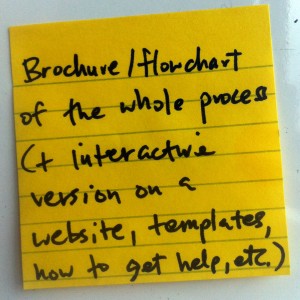 Brochure/flowchart
of the whole process
(+ interactive
version on a
website, templates,
how to get help, etc.)